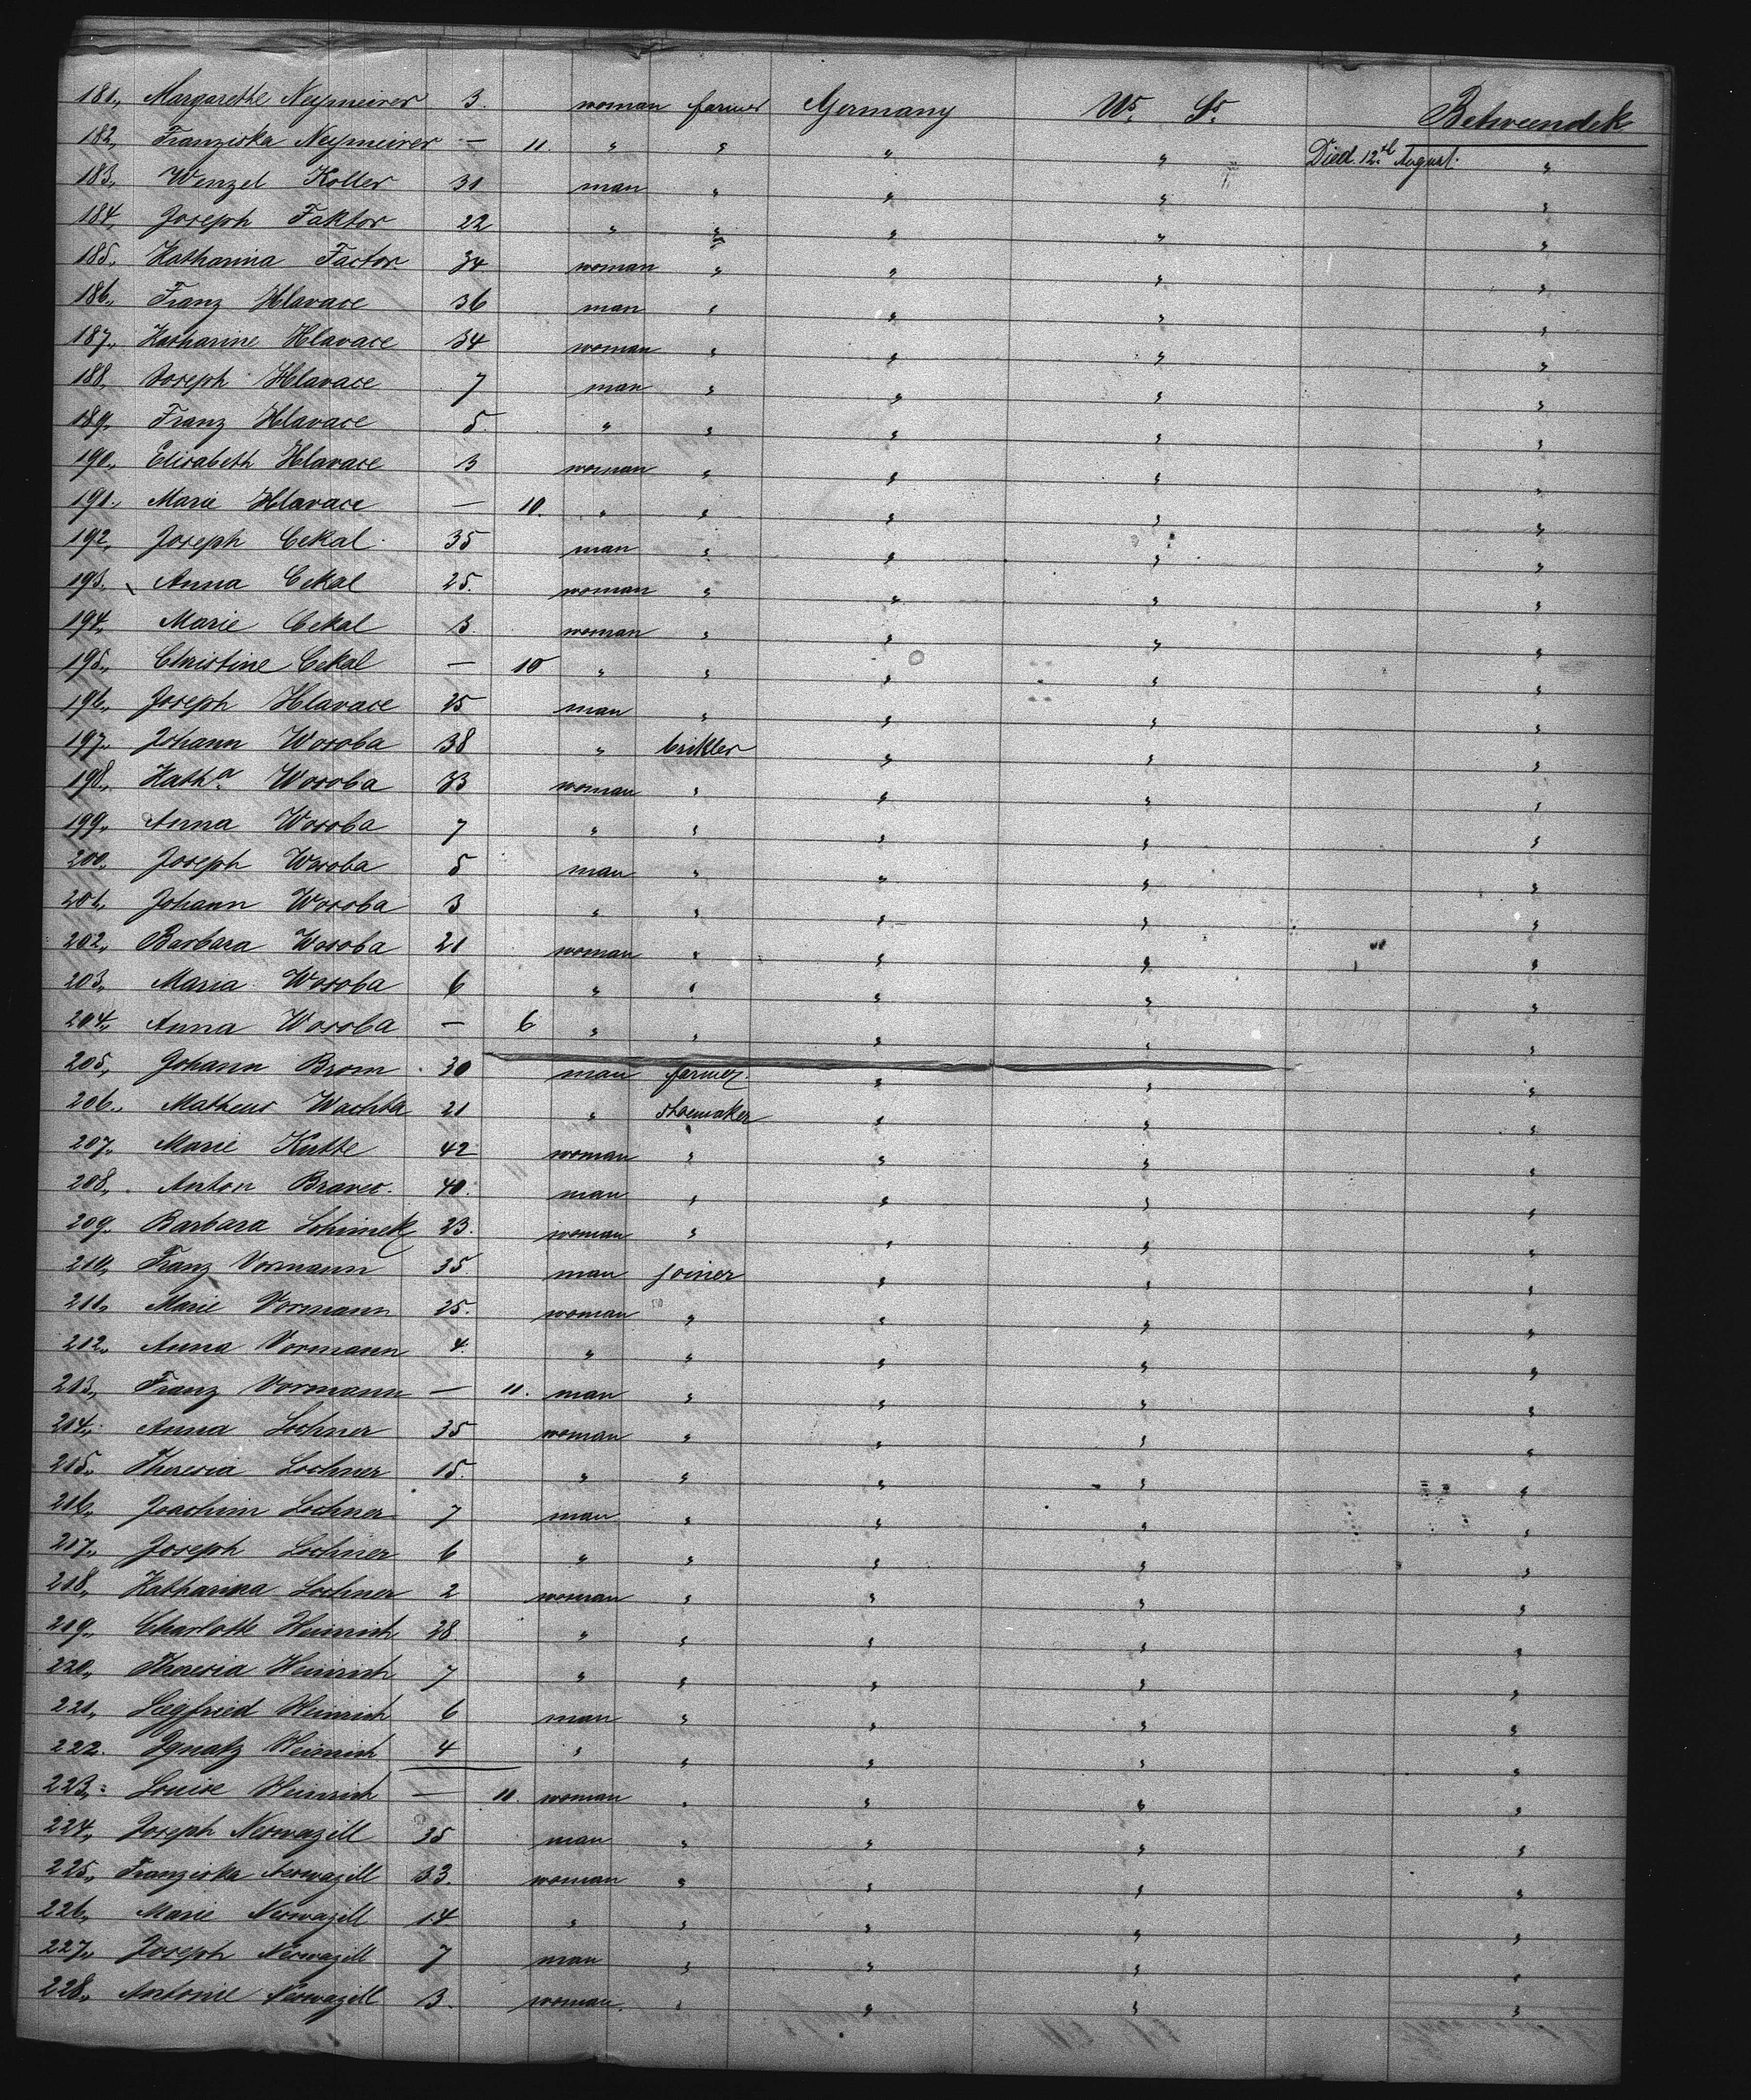 181,, Margarethe Neymeirer 3. woman farmer Germany U.S. St. Betweendek
182,, Franziska Neymeirer — 11. " " " " Died 12.th August. "
183,, Wenzel Koller 31 man " " " "
184,, Joseph Faktor 22 " " " " "
185,, Katharina Factor. 34 woman " " " "
186,, Franz Hlavace 36 man " " " "
187,, Katharine Hlavace 34 woman " " " "
188,, Joseph Hlavace 7 man " " " "
189,, Franz Hlavace 5 " " " " "
190,, Elisabeth Hlavace 3 woman " " " "
191,, Marie Hlavace — 10. " " " " "
192,, Joseph Cekal 35 man " " " "
193,, Anna Cekal 25. woman " " " "
194,, Marie Cekal 3. woman " " " "
195,, Christine Cekal — 10 " " " " "
196,, Joseph Hlavace 25 man " " " "
197,, Johann Woroba 38 " brikler " " "
198,, Kath.a Woroba 33 woman " " " "
199,, Anna Woroba 7 " " " " "
200,, Joseph Woroba 5 man " " " "
201,, Johann Woroba 3 " " " " "
202,, Barbara Woroba 21 woman " " " "
203,, Maria Woroba 6 " " " " "
204,, Anna Woroba — 6 " " " " "
205,, Johann Brom 30 man farmer. " " "
206,, Matheus Wachta 21 " shoemaker " " "
207,, Marie Kutte 42 woman " " " "
208,, Anton Braver. 40. man " " " "
209,, Barbara Schimek 23. woman " " " "
210,, Franz Vormann 35. man joiner " " "
211,, Marie Vormann 25. woman " " " "
212,, Anna Vormann 4. " " " " "
213,, Franz Vormann — 11. man " " " "
214,, Anna Lochner 35 woman " " " "
215,, Theresia Lochner 15. " " " " "
216,, Joachim Lochner 7 man " " " "
217,, Joseph Lochner 6 " " " " "
218,, Katharina Lochner 2 woman " " " "
219,, Charlotte Heinrich 28. " " " " "
220,, Theresia Heinrich 7 " " " " "
221,, Siegfried Heinrich 6 man " " " "
222. Ignatz Heinrich 4 " " " " "
223,, Louise Heinrich — 11. woman " " " "
224,, Joseph Nerwazill 35 man " " " "
225,, Franziska Nerwazill 33. woman " " " "
226,, Marie Nerwazill 14 " " " " "
227,, Joseph Nerwazill 7 man " " " "
228,, Antonie Nerwazill 3. woman. " " " "